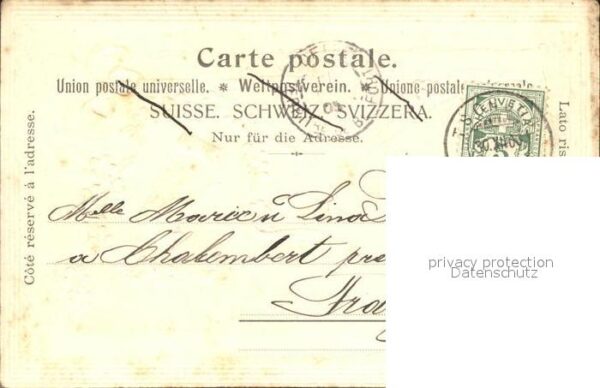 Carte postale.
Union postale universelle. * Weltpostverein. * Unione postale universale
SUISSE. SCHWEIZ. SVIZZERA.
Nur für die Adresse.
Côté réservé à l'adresse.
Lato ris
Melle Marie u Lina
a Chalembert pre
Fra
privacy protection
Datenschutz